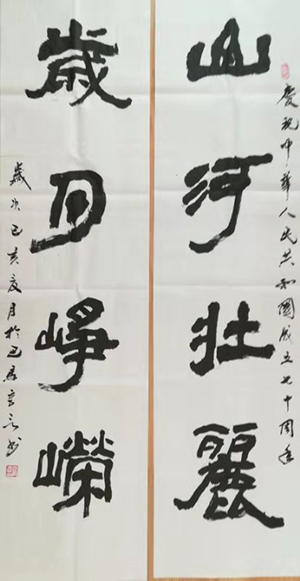 慶祝中華人民共和國成立七十周年
山河壯麗
歲月崢嶸
歲次己亥夏月於